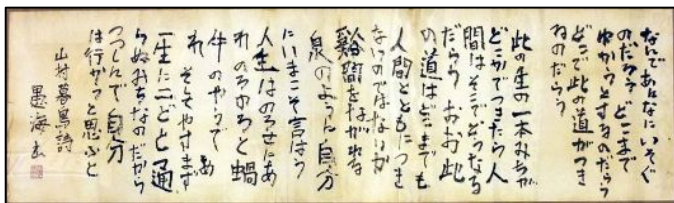 なんであんなにいそぐ
のだらう どこまで
ゆかうとするのだらう
どこで此の道がつき
るのだらう
此の生の一本みちが
どこかでつきたら人
間はそこでどうなる
だらう おお此
の道はどこまでも
人間とともにつき
ないのではないか
谿間をながれる
泉のように自分
はいまこそ言はう
人生はのろさにあ
れのろのろと蝸
牛のやうであ
れ そしてやすまず
一生に二どと通
らぬみちなのだから
つつしんで自分
は行かうと思ふと
山村暮鳥詩
愚海書